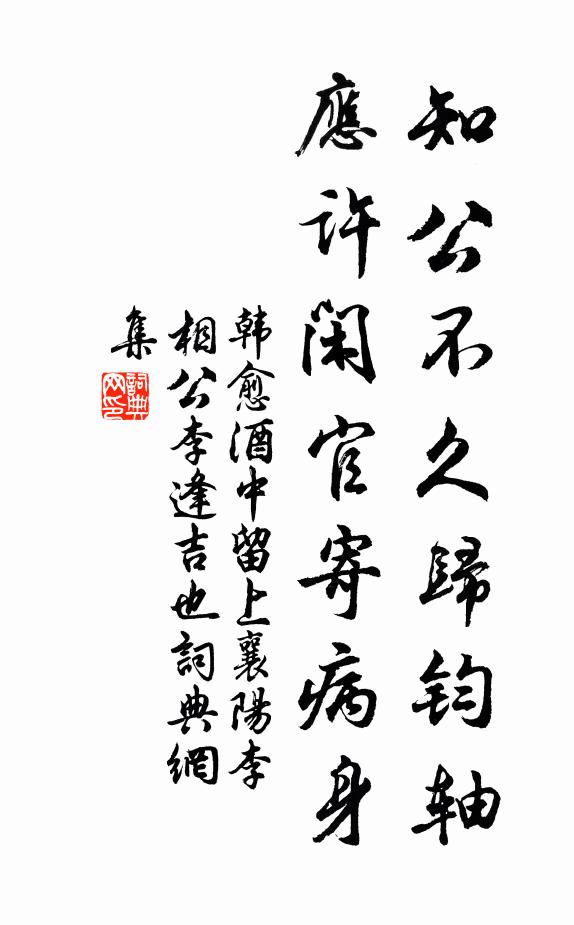 知公不久歸鈞軸
應許閑官寄病身
韩愈酒中留上襄陽李
相公李逢吉也詞典網
集
詞典网印